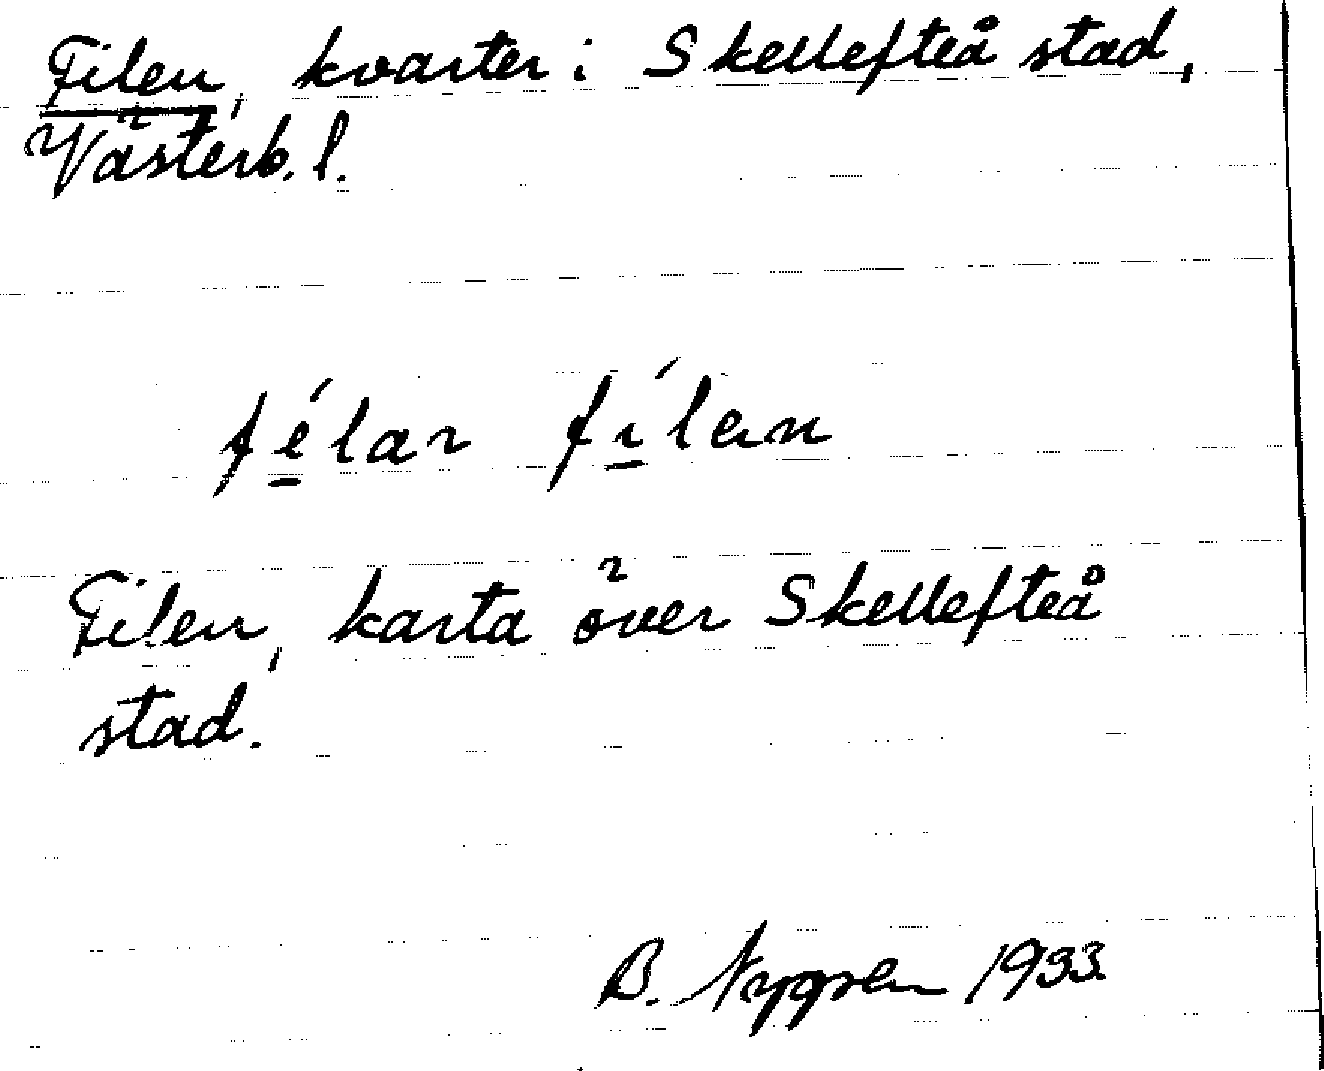 Filen, kvarter i Skellefteå stad,
Västerb. l.
fé̲lar fí̲len
Filen, karta över Skellefteå
stad.
B. Nygren 1933.